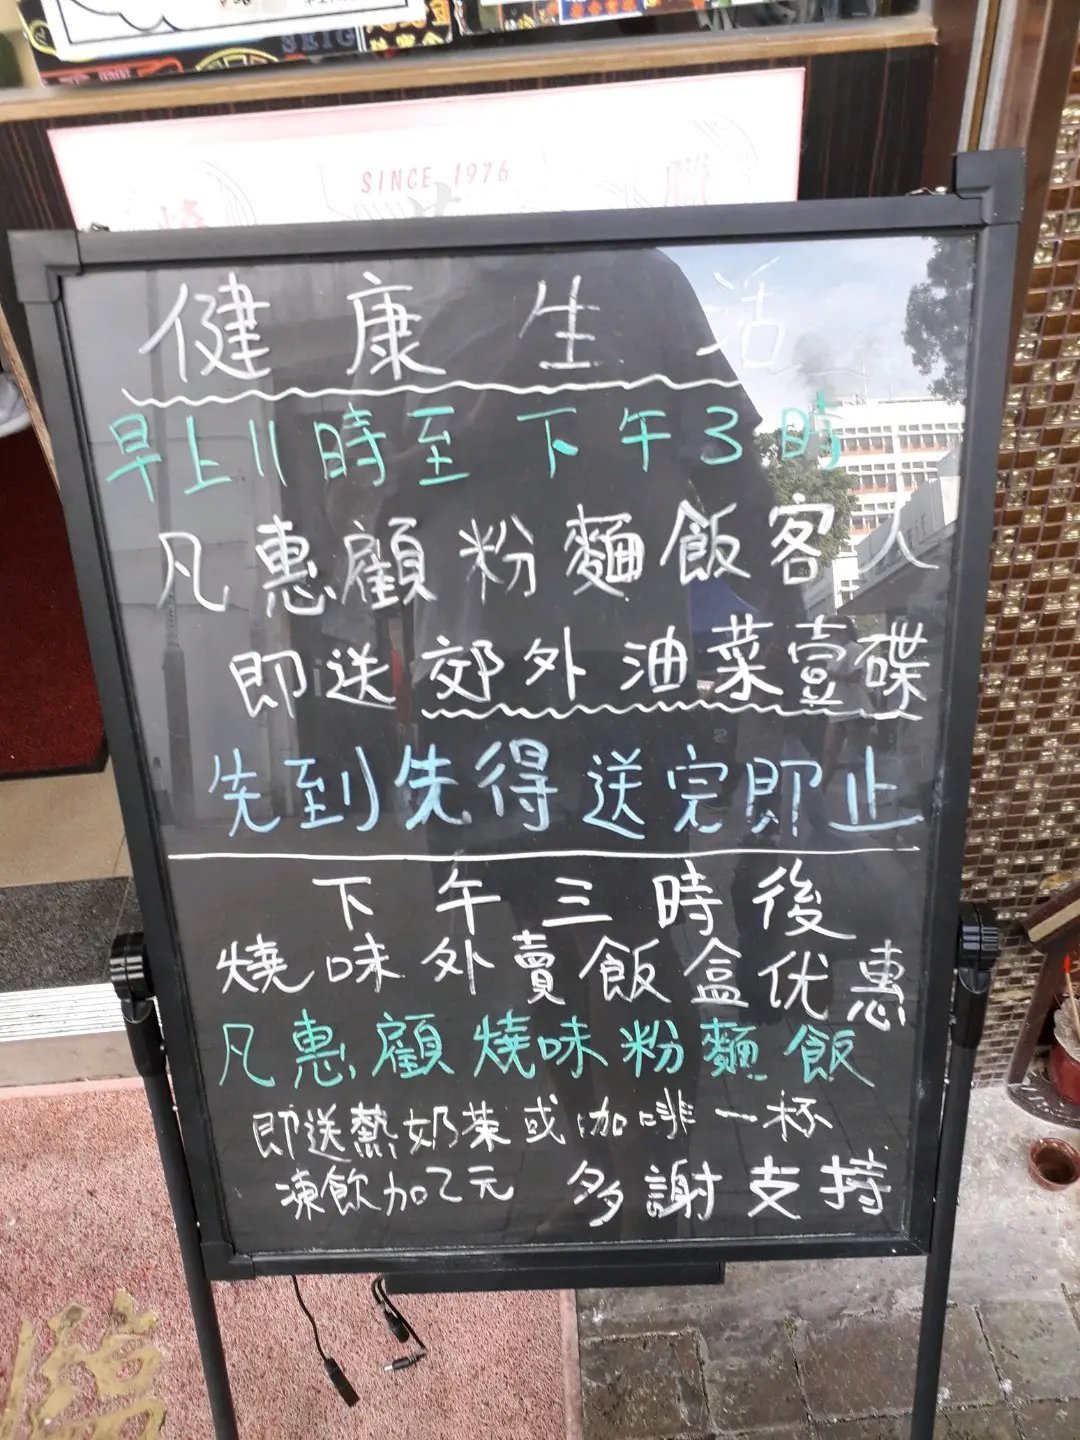 SEIG
SINCE 1976
燒 臘
健康生活
早上11時至下午3時
凡惠顧粉麵飯客人
即送郊外油菜壹碟
先到先得送完即止
下午三時後
燒味外賣飯盒优惠
凡惠顧燒味粉麵飯
即送熱奶茶或咖啡一杯
凍飲加2元 多謝支持